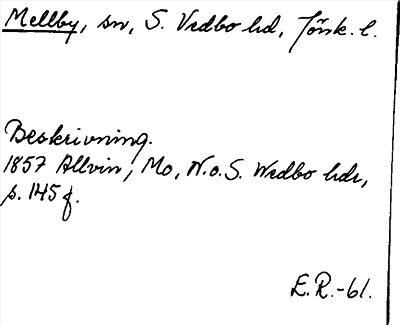 Mellby, sn, S. Vedbo hd, Jönk. l.
Beskrivning.
1857 Allvin, Mo, N.o.S. Wedbo hdr,
s. 145 f.
E.R.-61.